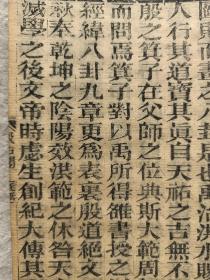 則而畫之八卦是也禹治洪水
人行其道寶其眞自天祐之吉無不
殷之箕子在父師之位典斯大範周
而問焉箕子對以禹所得雒書授之
經緯八卦九章更爲表裏殷道絕文
秋奉乾坤之陰陽效洪範之休咎天
滅學之後文帝時虙生創紀大傳其